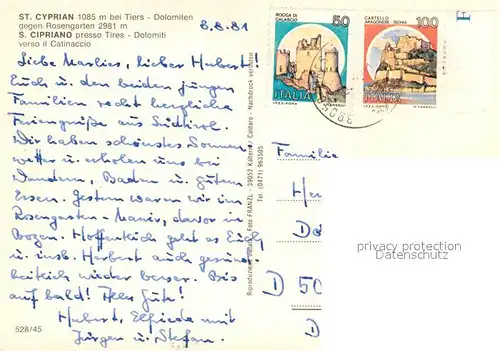 ST. CYPRIAN 1085 m bei Tiers - Dolomiten
gegen Rosengarten 2981 m
S. CIPRIANO presso Tires - Dolomiti
verso il Catinaccio
8.8.81
Liebe Marlies, lieber Hubert!
Euch u. den beiden jungen
Familien recht herzliche
Feriengrüße aus Südtirol.
Wir haben schönstes Sommer
wetter u. erholen uns bei
Wandern, Baden u. gutem
Essen. Gestern waren wir im
Rosengarten-Massiv, davor in
Bozen. Hoffentlich geht es Euch
u. insb. Herbert auch gesund-
heitlich wieder besser. Bis
auf bald! Alles Gute!
Hubert, Elfriede mit
Jürgen u. Stefan.
528/45
Reproduzione vietata - Foto FRANZL - 39052 Kaltern / Caldaro - Nachdruck verboten
Tel. (0471) 963505
ROCCA DI
CALASCIO
50
ITALIA
CASTELLO
ARAGONESE ISCHIA
100
ITALIA
Familie
D 50
D
privacy protection
Datenschutz